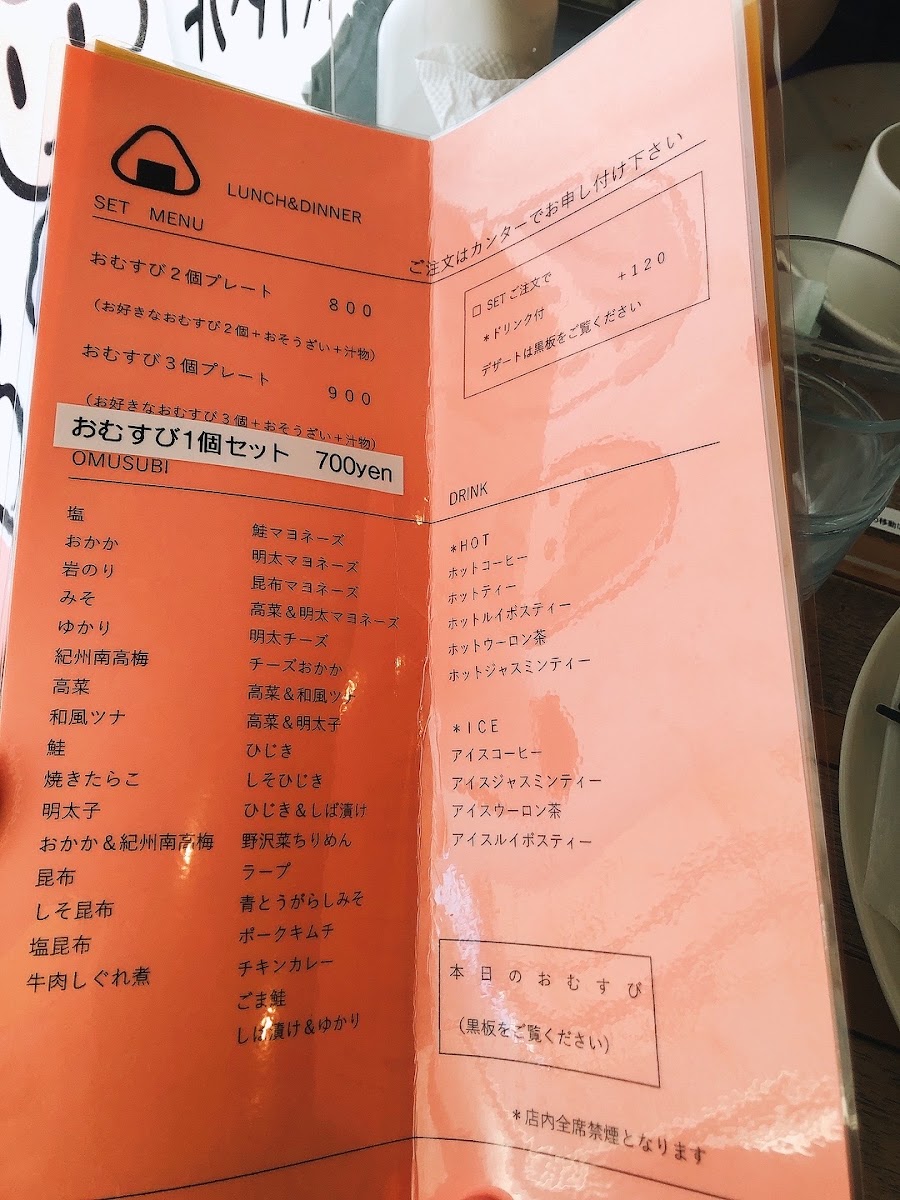 LUNCH&DINNER
SET MENU
おむすび２個プレート ８００
（お好きなおむすび２個＋おそうざい＋汁物）
おむすび３個プレート ９００
（お好きなおむすび３個＋おそうざい＋汁物）
おむすび1個セット 700yen
OMUSUBI
塩
おかか
岩のり
みそ
ゆかり
紀州南高梅
高菜
和風ツナ
鮭
焼きたらこ
明太子
おかか＆紀州南高梅
昆布
しそ昆布
塩昆布
牛肉しぐれ煮
鮭マヨネーズ
明太マヨネーズ
昆布マヨネーズ
高菜＆明太マヨネーズ
明太チーズ
チーズおかか
高菜＆和風ツナ
高菜＆明太子
ひじき
しそひじき
ひじき＆しば漬け
野沢菜ちりめん
ラープ
青とうがらしみそ
ポークキムチ
チキンカレー
ごま鮭
しば漬け＆ゆかり
ご注文はカンターでお申し付け下さい
□ SETご注文で ＋１２０
＊ドリンク付
デザートは黒板をご覧ください
DRINK
＊HOT
ホットコーヒー
ホットティー
ホットルイボスティー
ホットウーロン茶
ホットジャスミンティー
＊ICE
アイスコーヒー
アイスジャスミンティー
アイスウーロン茶
アイスルイボスティー
本日のおむすび
（黒板をご覧ください）
＊店内全席禁煙となります